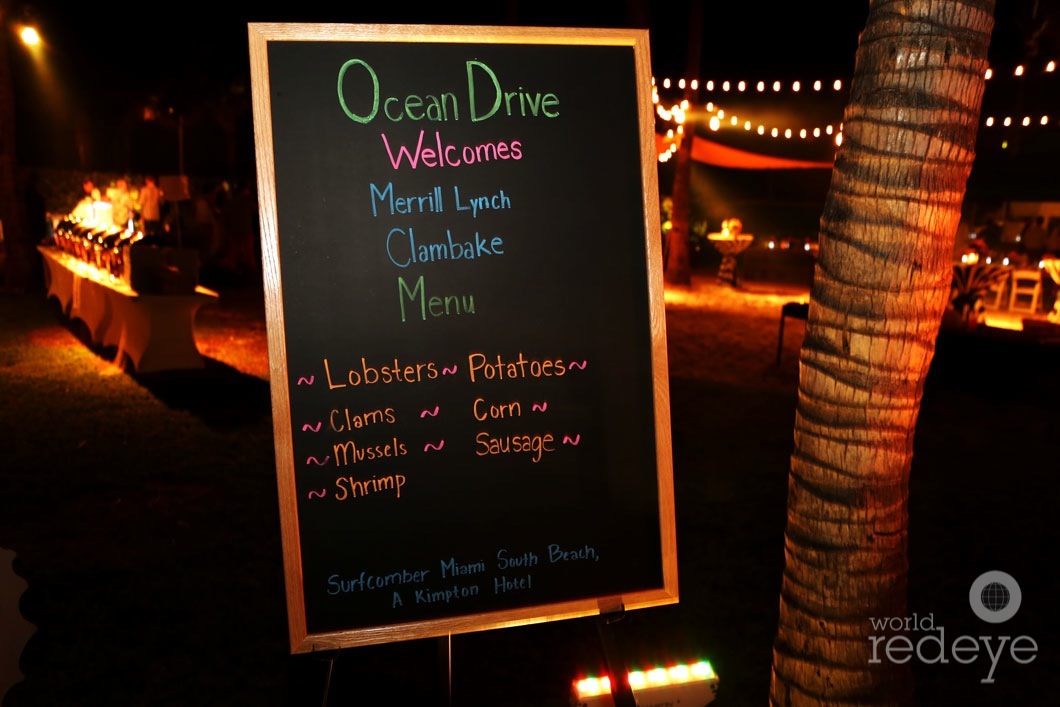 Ocean Drive
Welcomes
Merrill Lynch
Clambake
Menu
~ Lobsters ~ Potatoes ~
~ Clams ~ Corn ~
~ Mussels ~ Sausage ~
~ Shrimp
Surfcomber Miami South Beach,
A Kimpton Hotel
world
redeye